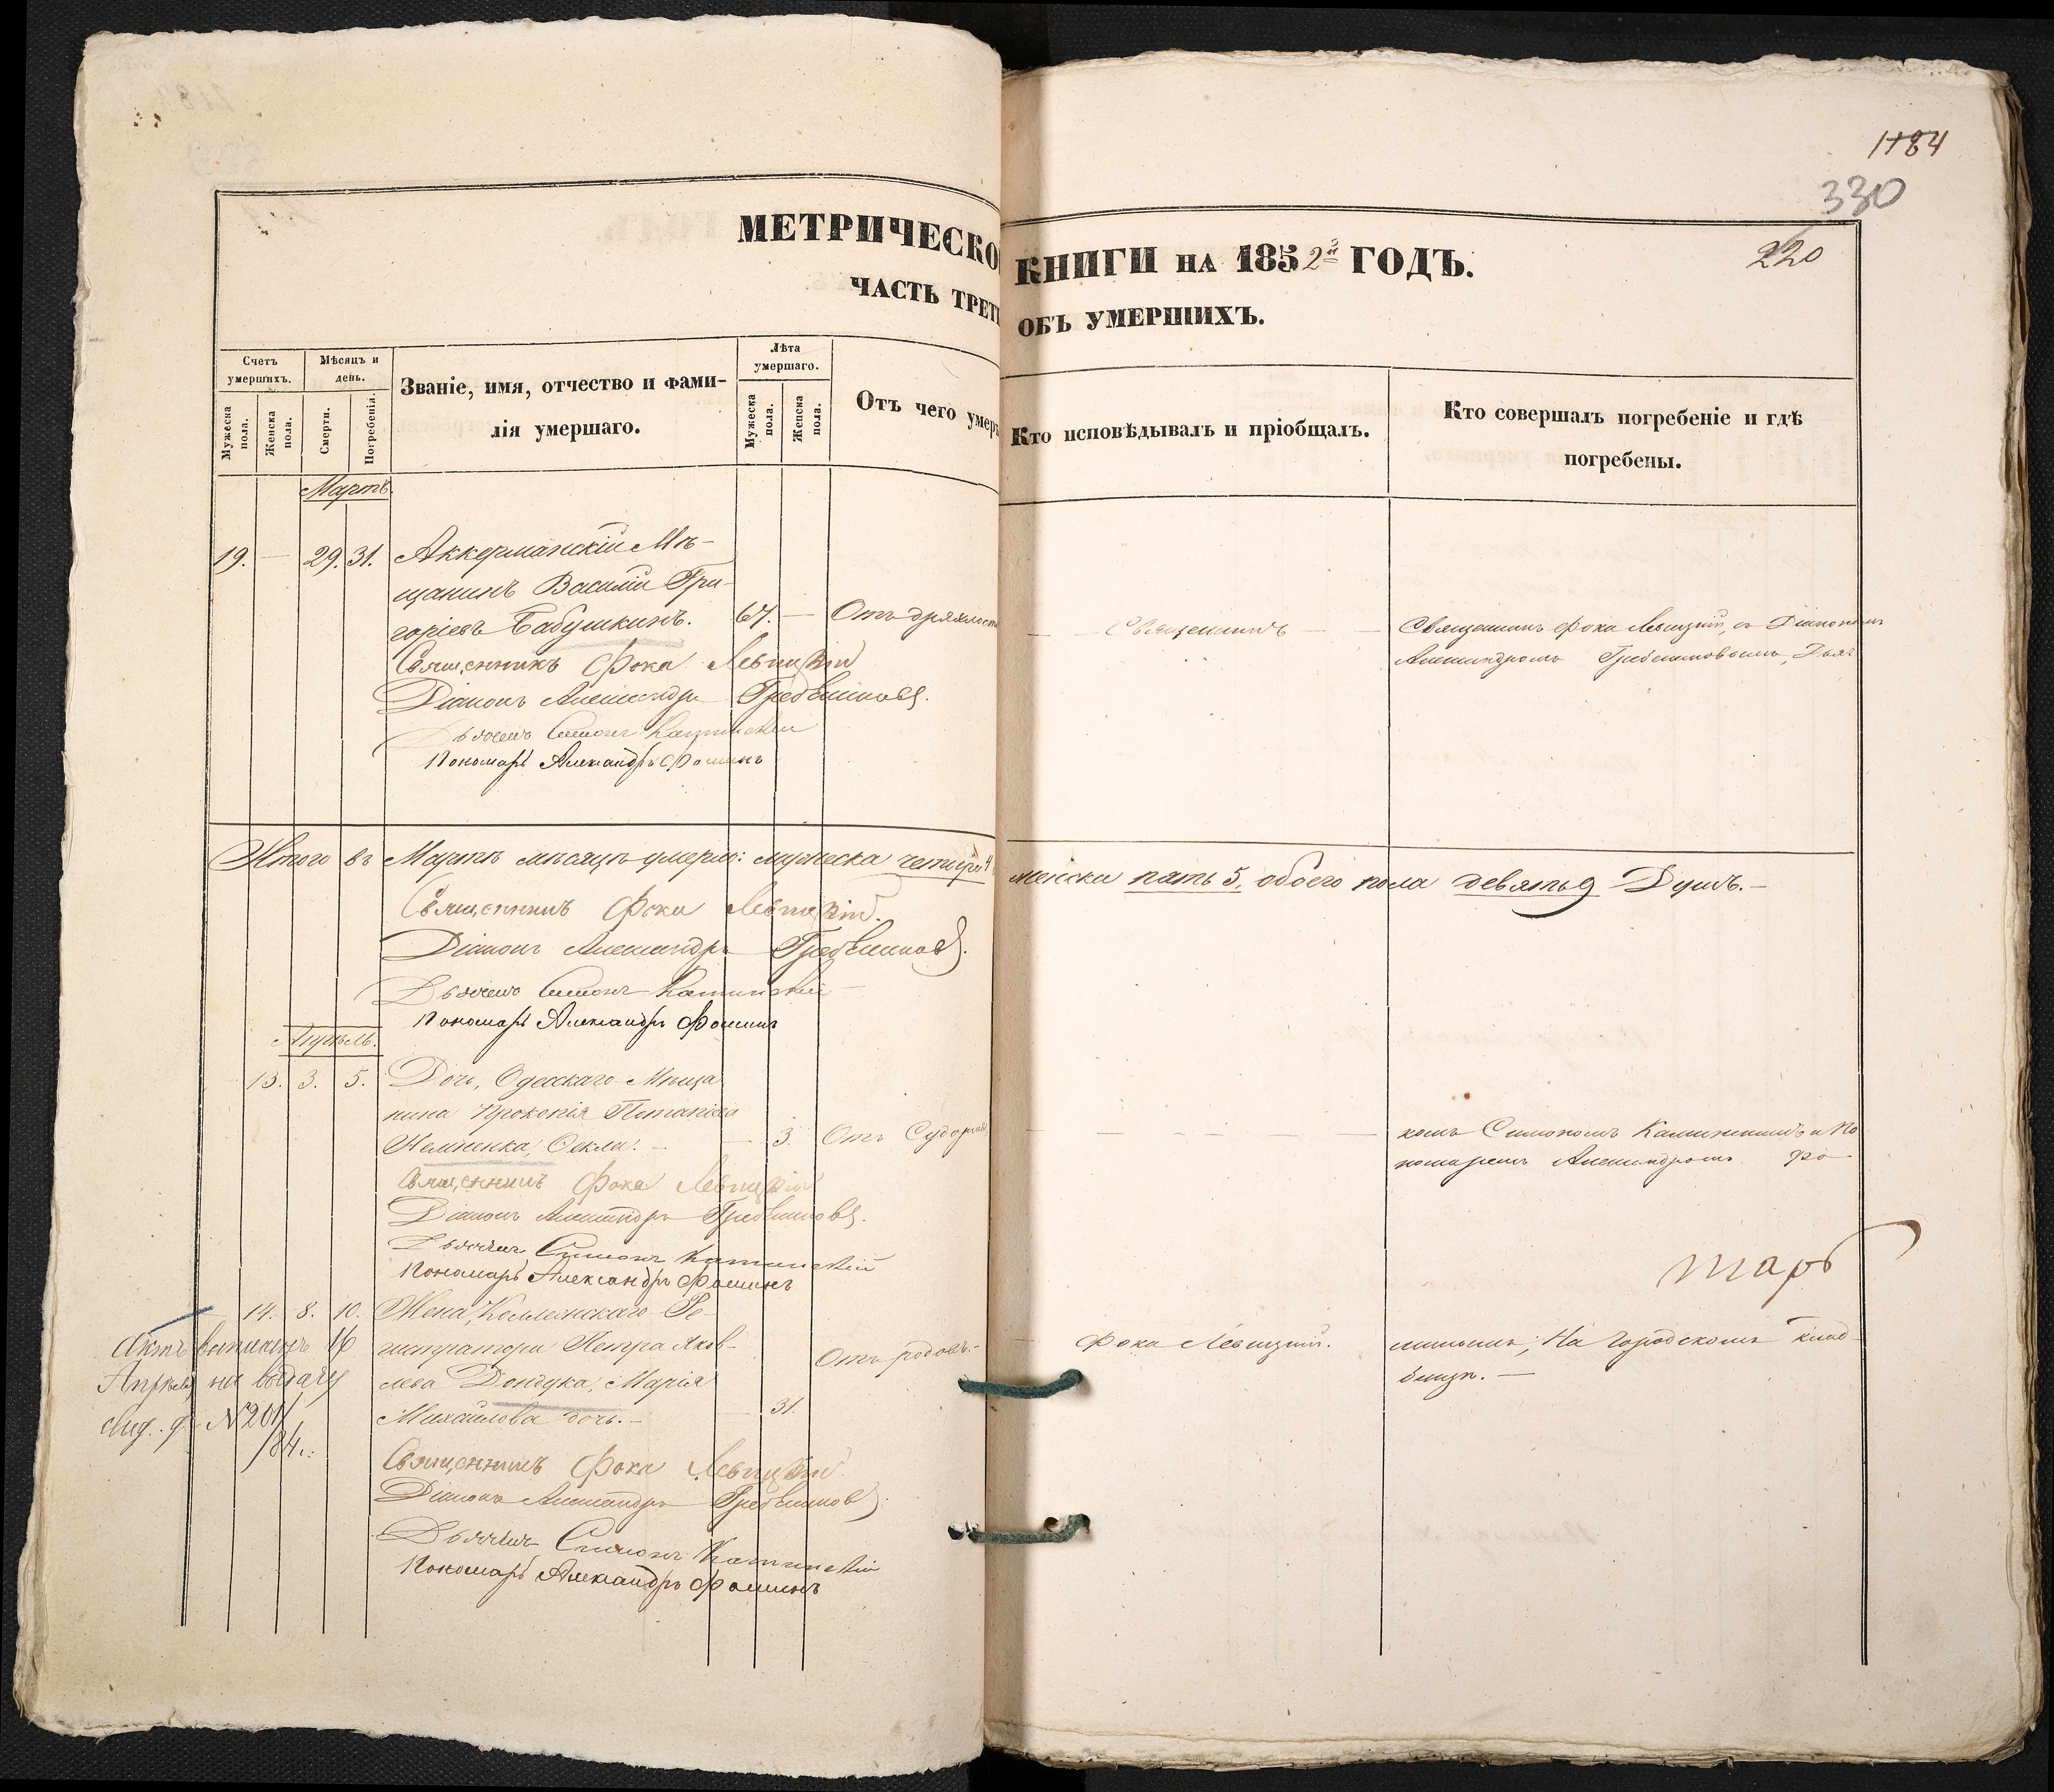 1184
330
220
МЕТРИЧЕСКО КНИГИ НА 1852й ГОДЪ.
ЧАСТЬ ТРЕТ ОБЪ УМЕРШИХЪ.
Счетъ умершихъ.
Мѣсяцъ и день.
Званіе, имя, отчество и фами-
лія умершаго.
Лѣта умершаго.
Отъ чего умеръ
Кто исповѣдывалъ и пріобщалъ.
Кто совершалъ погребеніе и гдѣ
погребены.
Мужеска пола.
Женска пола.
Смерти.
Погребенія.
Мужеска пола.
Женска пола.
Мартъ.
19. — 29. 31. Аккерманскій Мѣ-
щанинъ Василій Гри-
горіевъ Бабушкинъ. 67. — Отъ дряхлости
Священникъ
Священникъ Фока Левицкій, съ Діакономъ
Александромъ Гребенниковымъ, Дьяч
Священникъ Фока Левицкій
Діаконъ Александръ Гребенниковъ.
Дьячекъ Симонъ Каминскій
Пономарь Александръ Фоминъ
Итого въ Мартѣ мѣсяцѣ умерло: мужеска четыре 4 женска пять 5, обоего пола девять 9 Душъ. —
Священникъ Фока Левицкій.
Діаконъ Александръ Гребенниковъ.
Дьячекъ Симонъ Каминскій
Пономарь Александръ Фоминъ
Апрѣль.
13. 3. 5. Дочь, Одесскаго Мѣща-
нина Прокопія Потапіева
Немченка, Өекла. — — 3. Отъ Судорги
комъ Симономъ Каминскимъ и По
номаремъ Александромъ Фо
Священникъ Фока Левицкій
Діаконъ Александръ Гребенниковъ.
Дьячекъ Симонъ Каминскій
Пономарь Александръ Фоминъ
тарь
14. 8. 10. Жена, Коллежскаго Ре-
гистратора Петра Яков-
лева Дондука, Марія
Михайлова дочь. — 31. Отъ родовъ. —
Фока Левицкій.
минымъ; На городскомъ клад-
бищѣ. —
Актъ выписанъ 16
Апрѣля на выдачу
N 201/
/84 г.
Священникъ Фока Левицкій
Діаконъ Александръ Гребенниковъ.
Дьячекъ Симонъ Каминскій
Пономарь Александръ Фоминъ